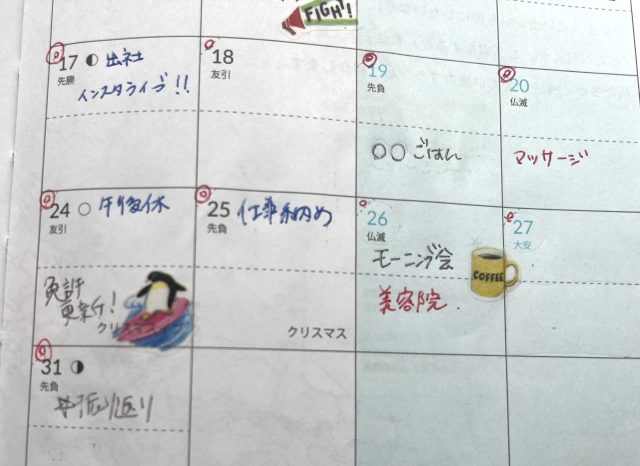 FIGHT!
17 出社
先勝
インスタライブ!!
18
友引
19
先負
○○ ごはん
20
仏滅
マッサージ
24 午後休
友引
免許
更新!
クリスマス
25 仕事納め
先負
クリスマス
26
仏滅
モーニング会
美容院.
COFFEE
27
大安
31
先負
振り返り